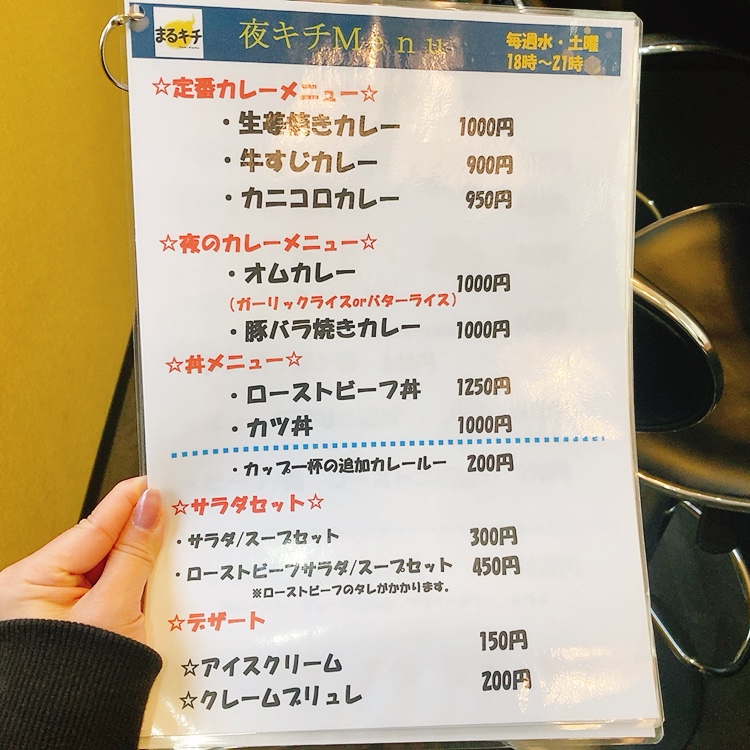 まるキチ
夜キチMenu
毎週水・土曜
18時〜21時
☆定番カレーメニュー☆
・生姜焼きカレー 1000円
・牛すじカレー 900円
・カニコロカレー 950円
☆夜のカレーメニュー☆
・オムカレー 1000円
(ガーリックライスorバターライス)
・豚バラ焼きカレー 1000円
☆丼メニュー☆
・ローストビーフ丼 1250円
・カツ丼 1000円
・カップ一杯の追加カレールー 200円
☆サラダセット☆
・サラダ/スープセット 300円
・ローストビーフサラダ/スープセット 450円
※ローストビーフのタレがかかります。
☆デザート
☆アイスクリーム 150円
☆クレームブリュレ 200円